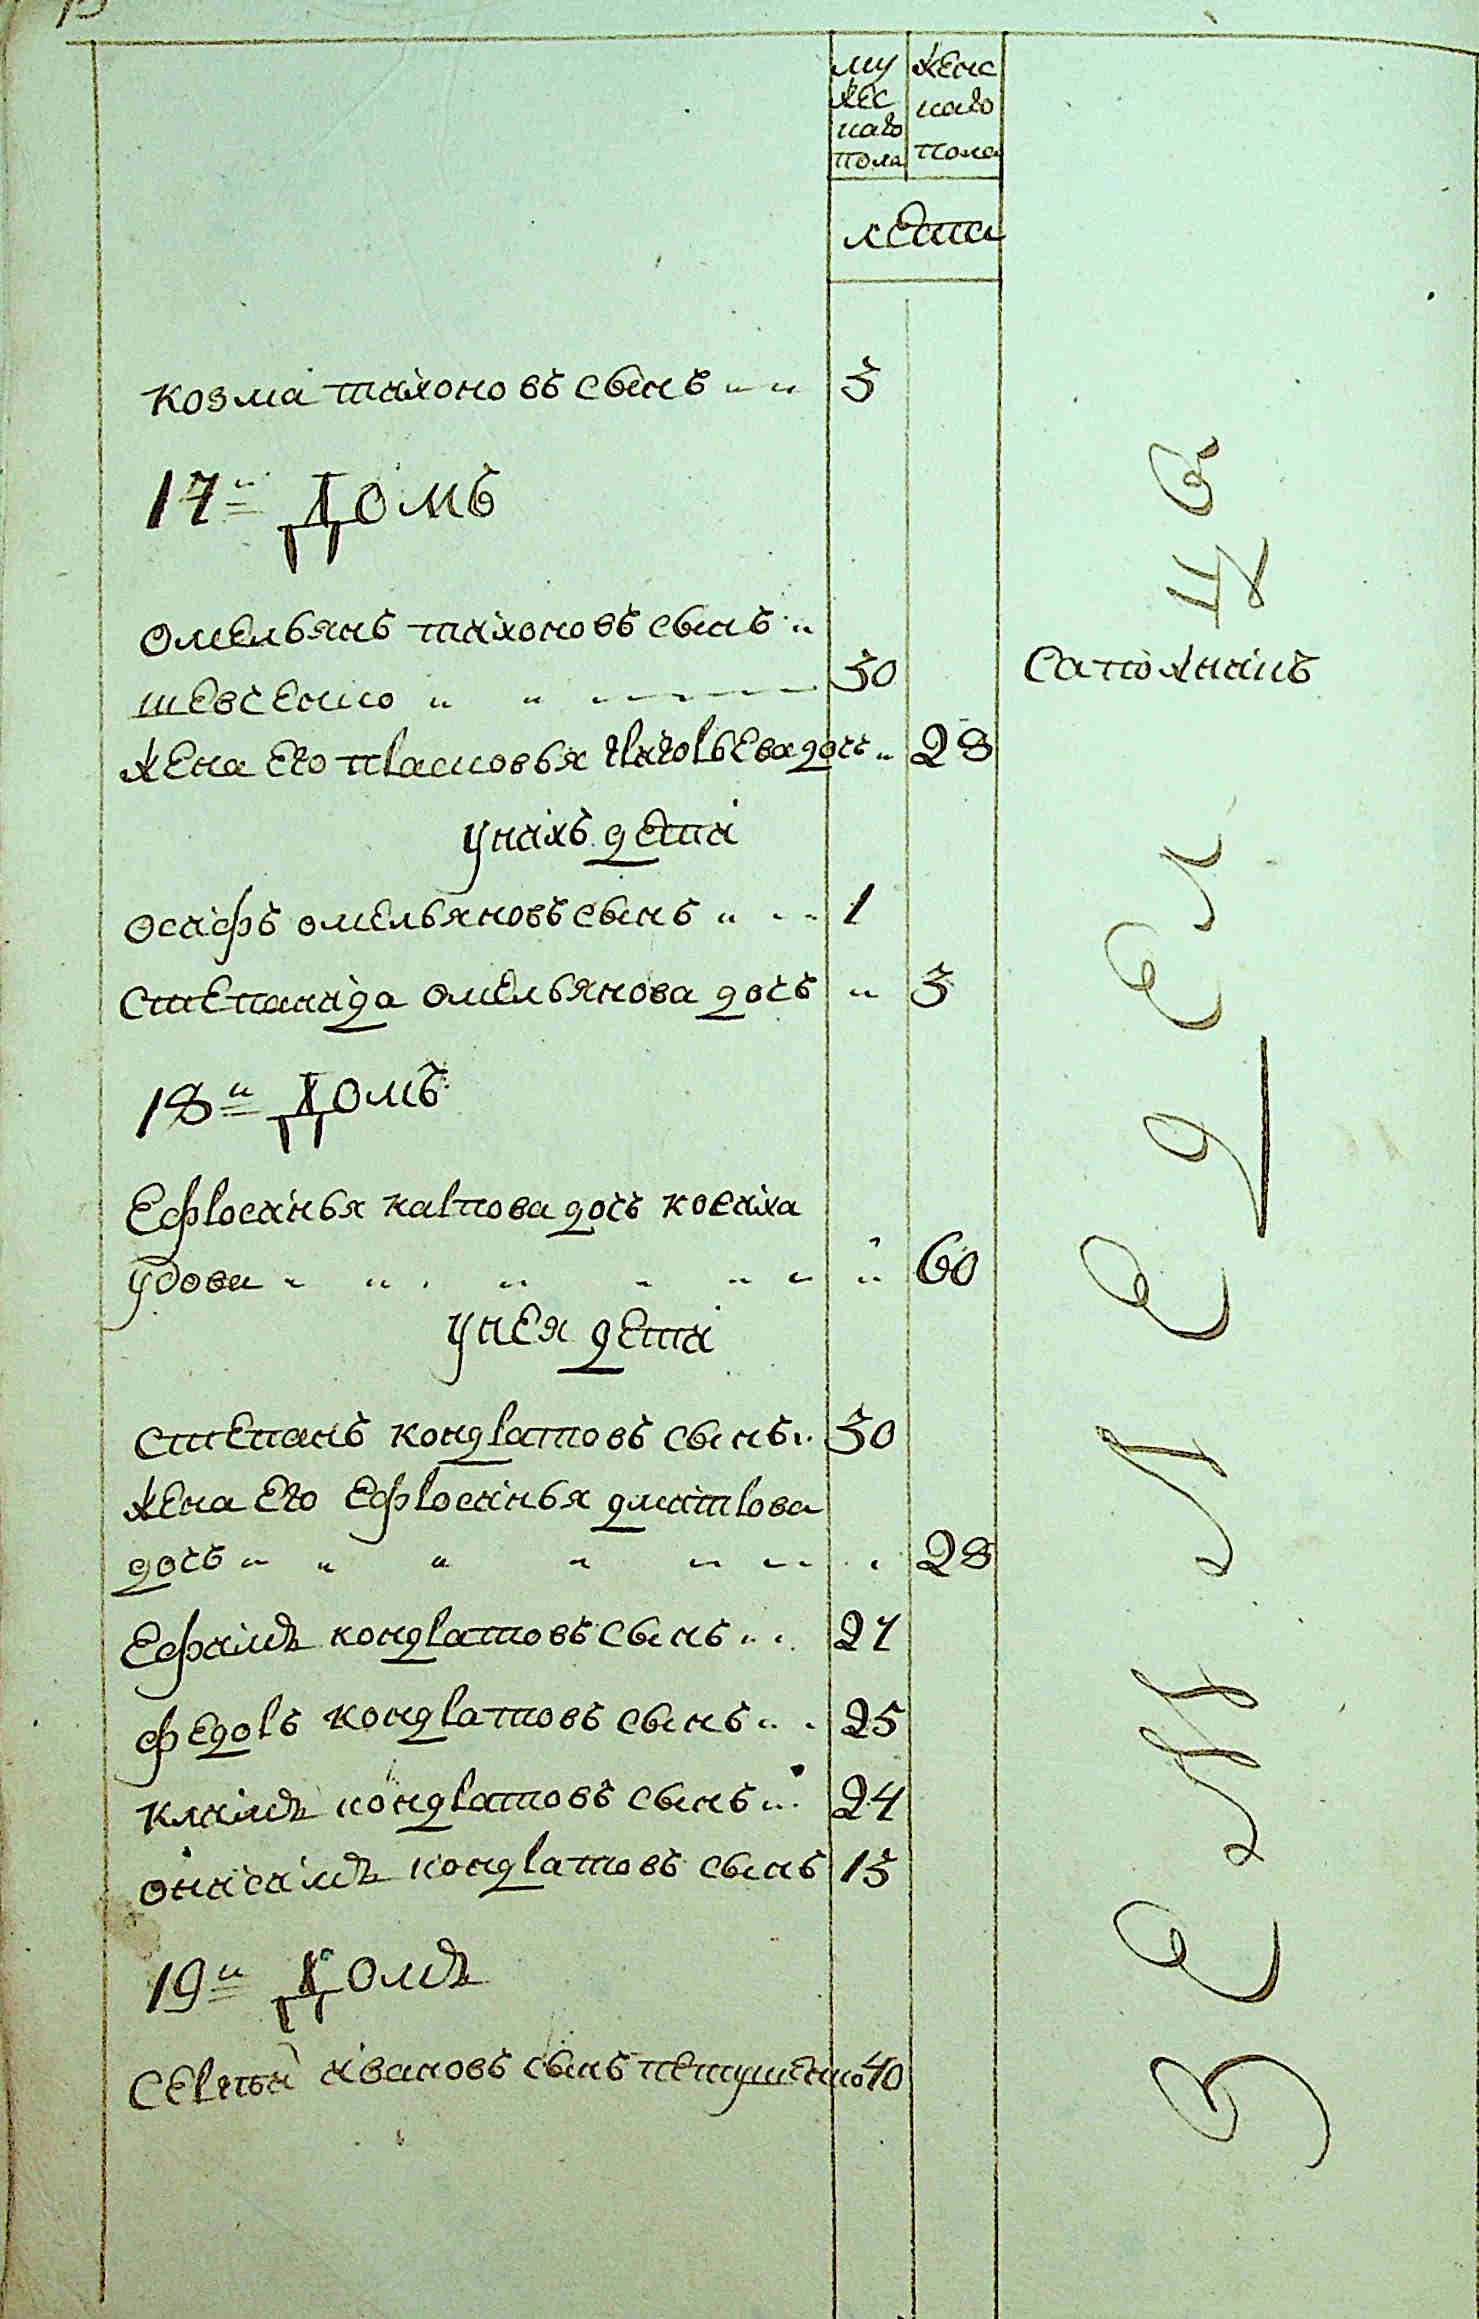 му жес каго пола
женс каго пола
лета
козма тихоно въ сынъ 3
17й Домъ
омельянъ тихоновъ сынъ
шевченко 30 Сапожникъ
жена его прасковья григорьева дочь 28
у нихъ дети
осифъ омельяновъ сынъ 1
степанида омельянова дочь 3
18й Домъ
Ефросинья карпова дочь
удова 60
у нея дети
степанъ кондратовъ сынъ 30
жена его ефросинья дмитрова
дочь 28
Ефимъ кондратовъ сынъ 27
федоръ кондратовъ сынъ 25
климъ кондратовъ сынъ 24
онисимъ кондратовъ сынъ 13
19й Домъ
ивановъ сынъ петушенко 40
Земледелцы